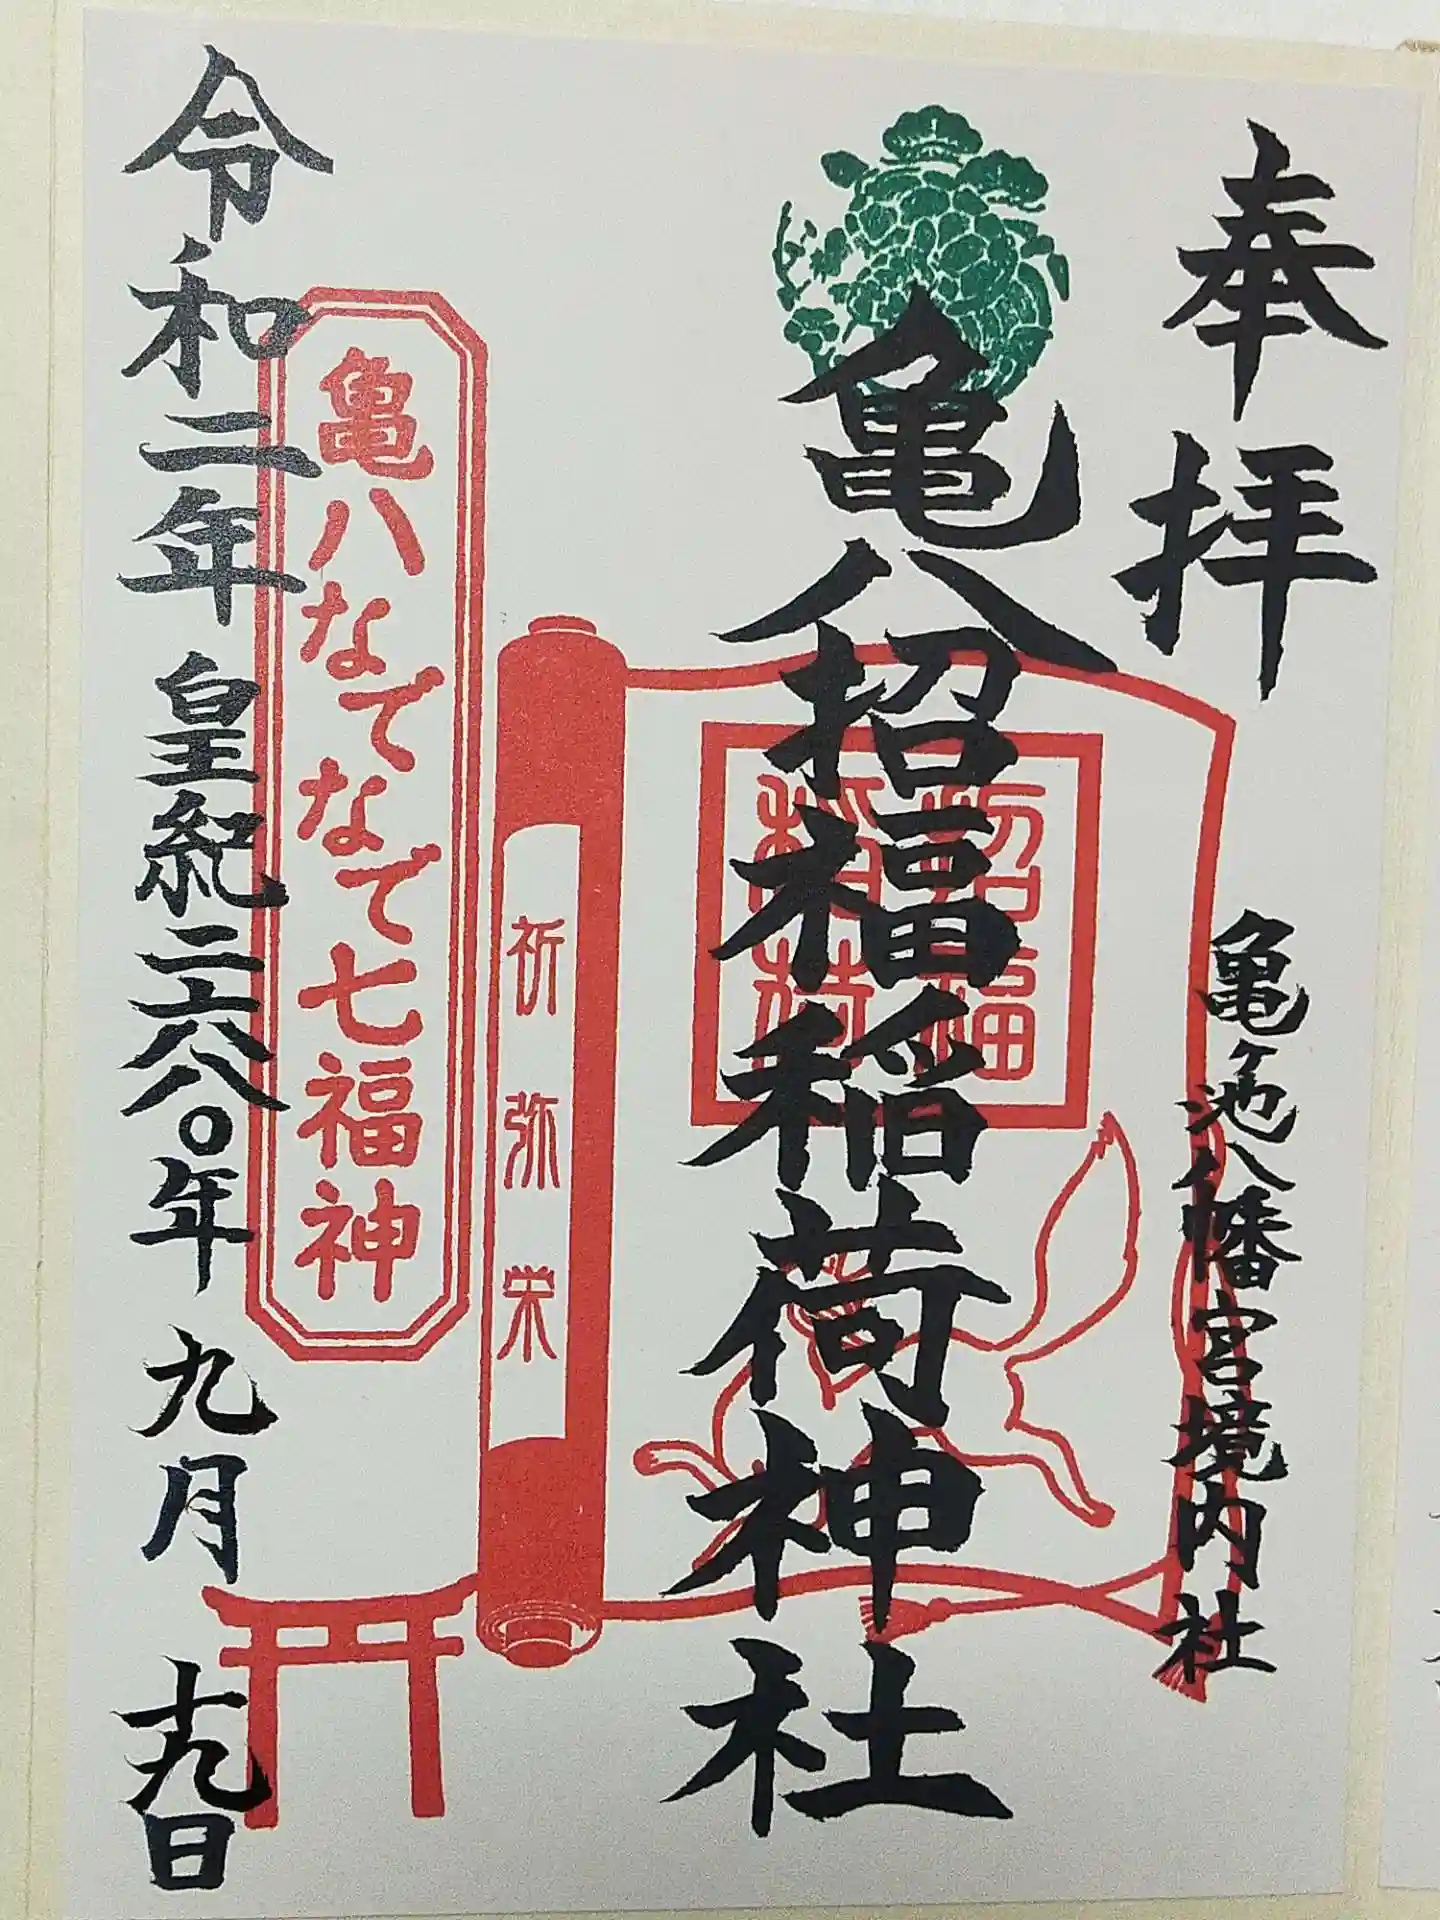 奉拝
亀ヶ池八幡宮境内社
亀八招福稲荷神社
招福
稲荷
祈弥栄
亀八なでなで七福神
令和二年皇紀二六八〇年九月十九日